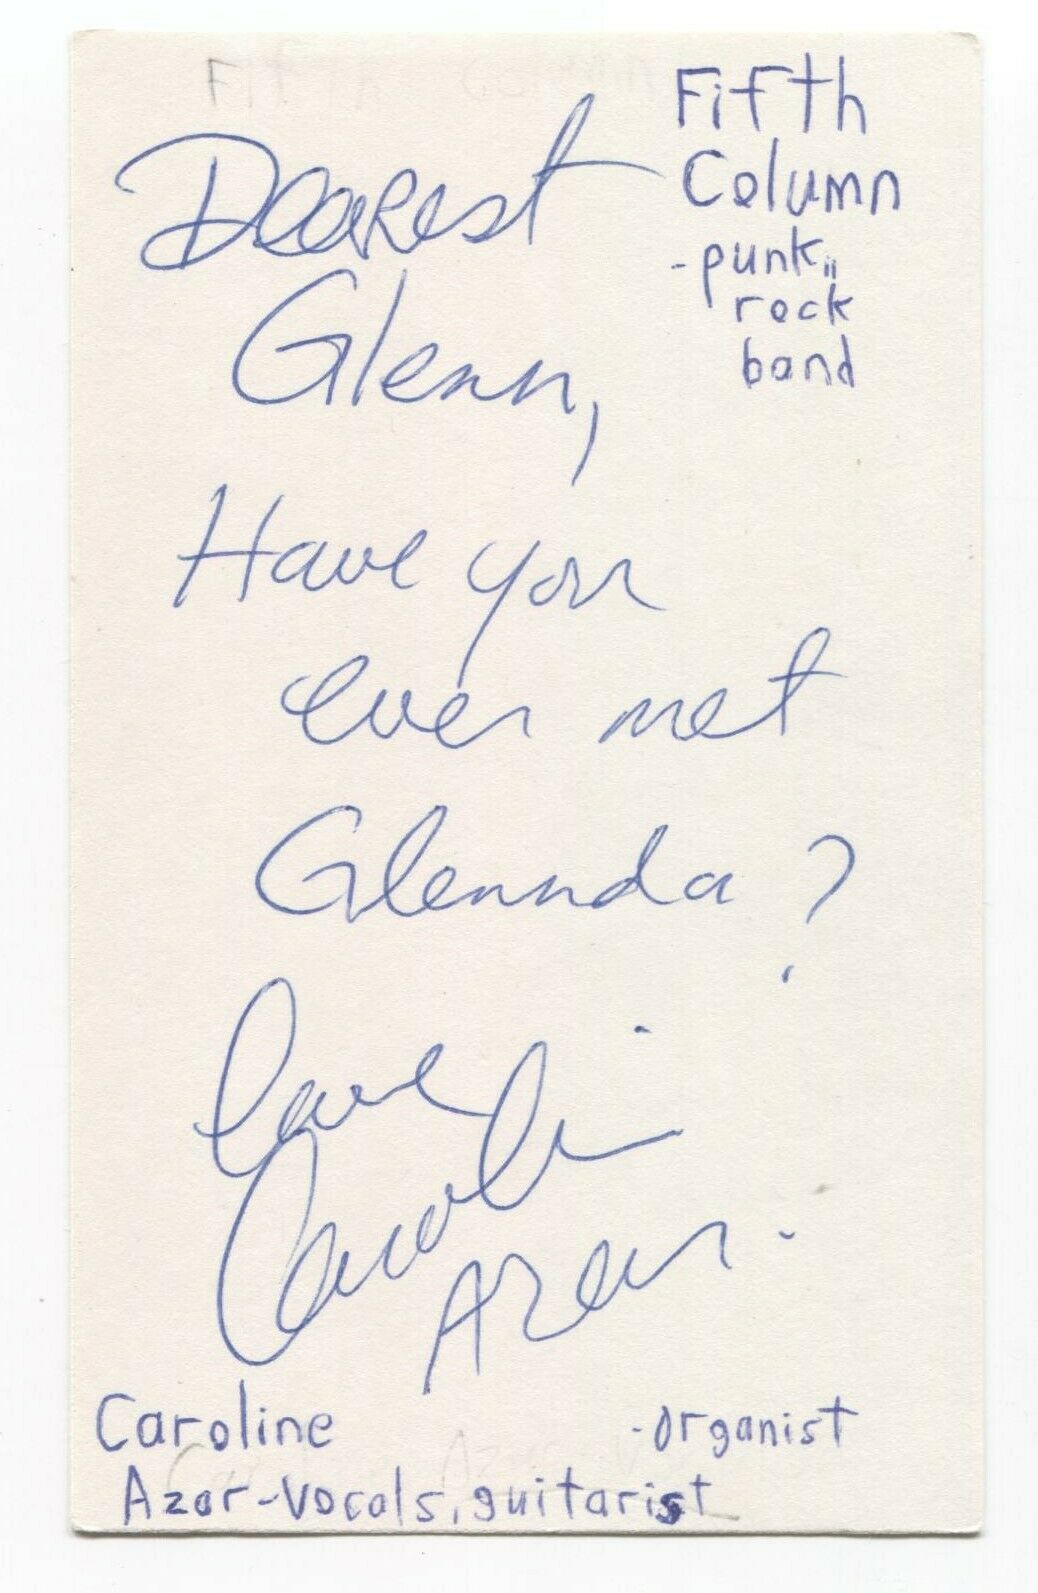 Fifth
Column
-punk
rock
band
Dearest
Glenn,
Have you
ever met
Glennda?
Love
Caroline
Azar.
Caroline -organist
Azar-Vocals, guitarist